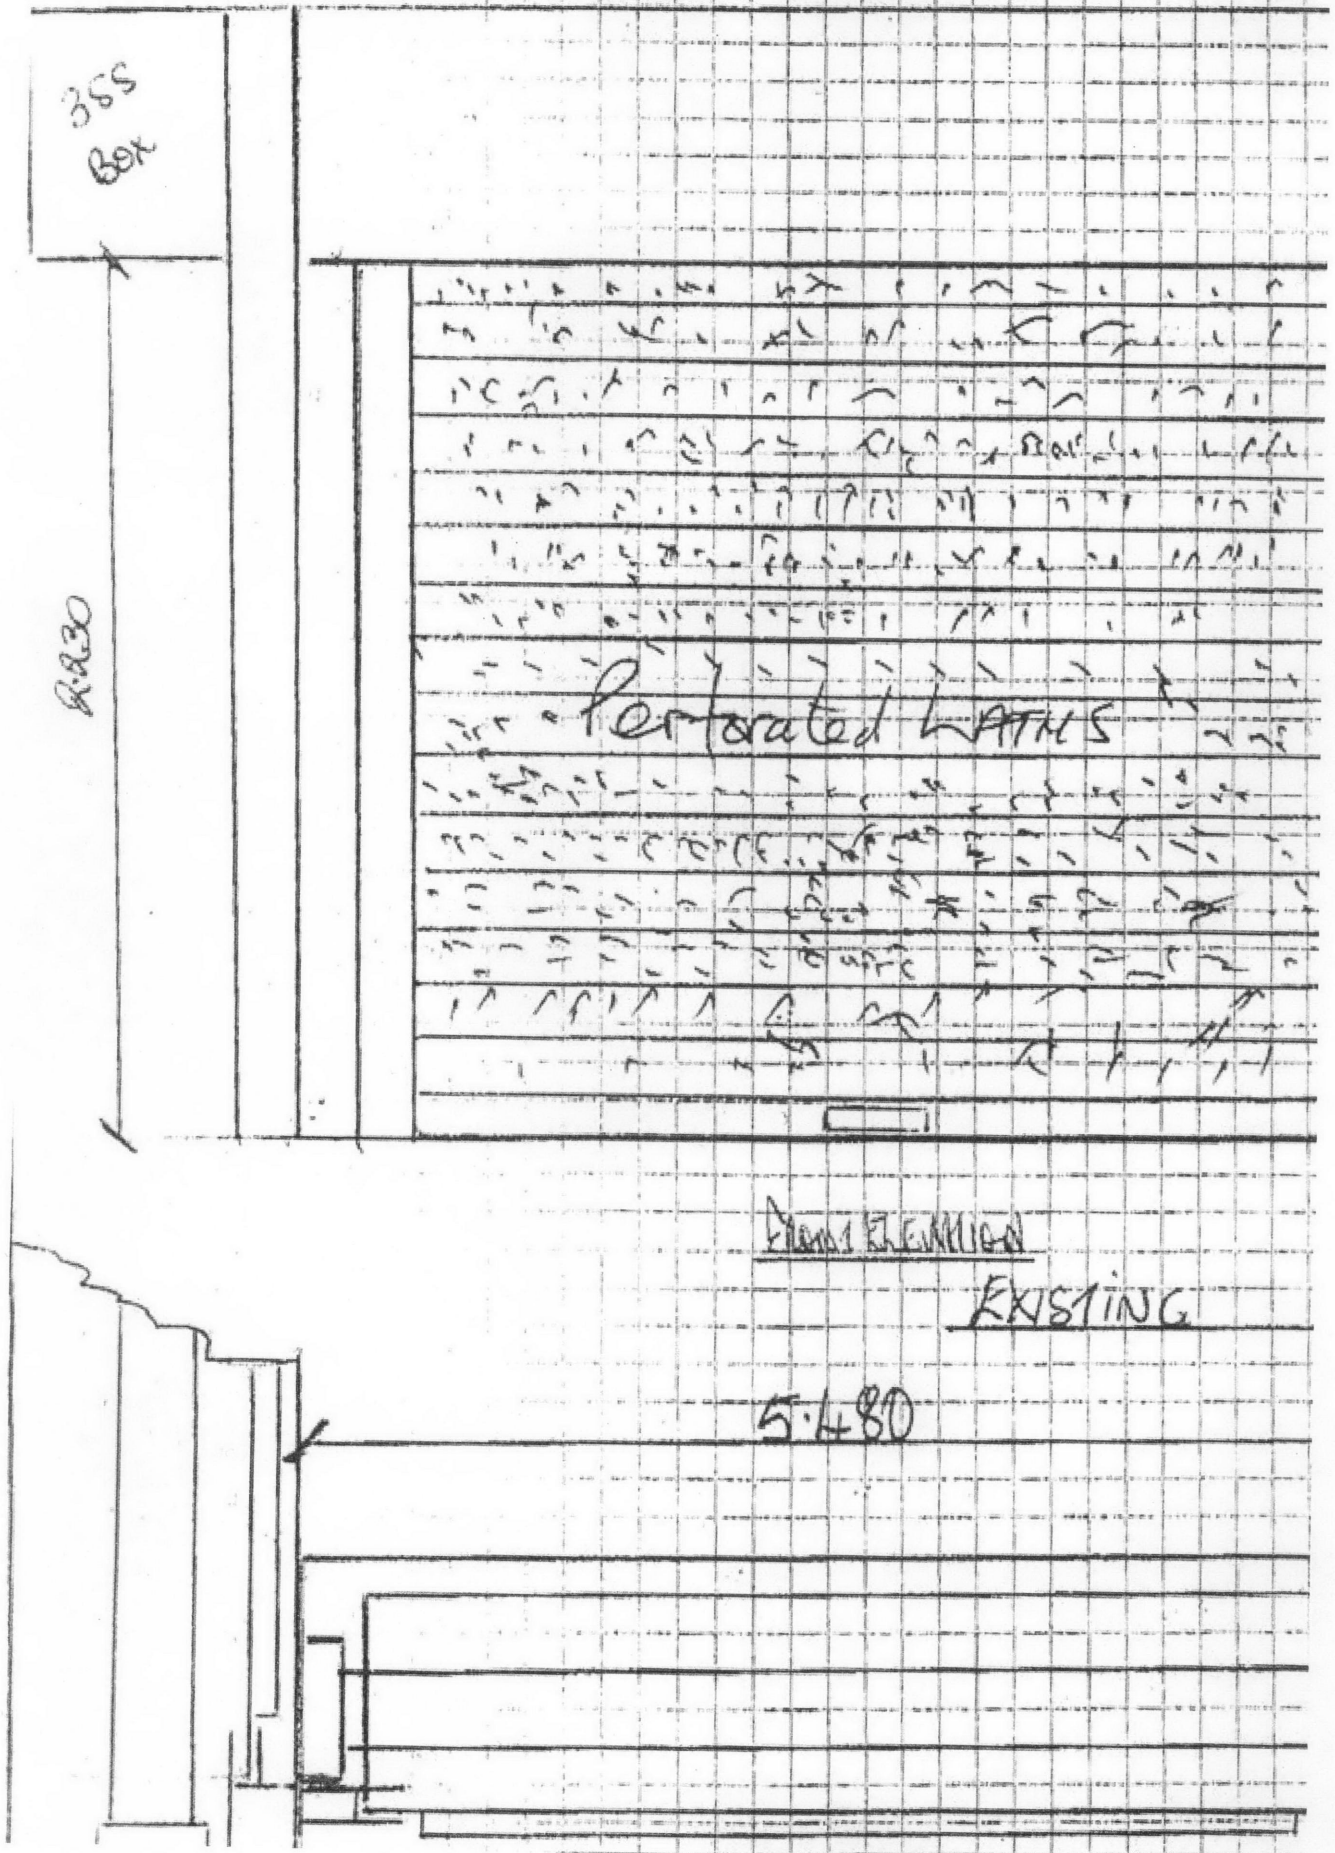 355
Box
2.230
Perforated LATHS
FRONT ELEVATION
EXISTING
5.480